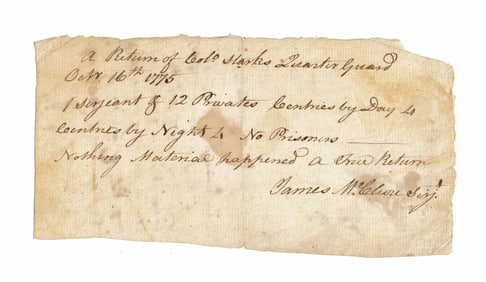 A Return of Colo Starks Quarter Guard
Octr 16th 1775
1 Serjeant & 12 Privates Centries by Day 4
Centries by Night 4 No Prisoners
Nothing Material happened A True Return
James McClure Serjt